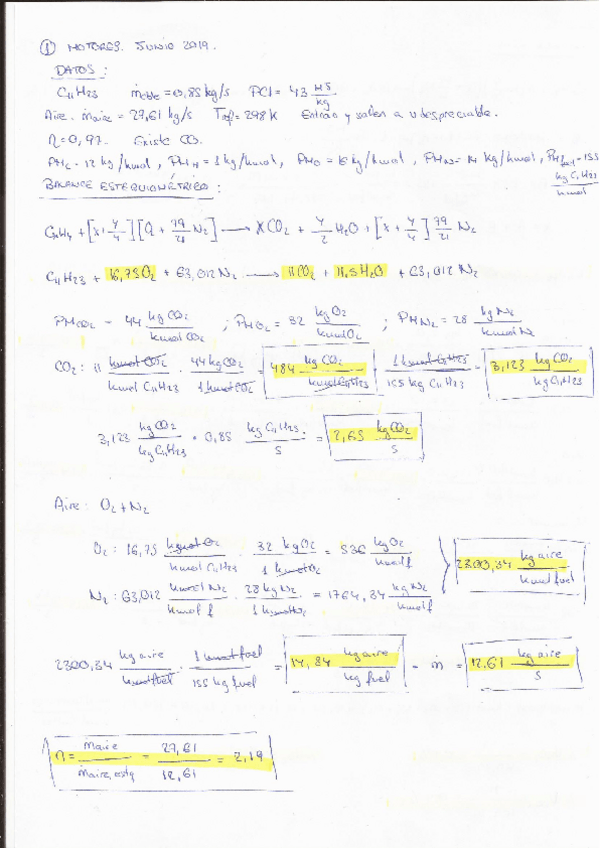 ① MOTORES. JUNIO 2019.
DATOS:
C11H23 ṁcble = 0,85 kg/s PCI = 43 MJ/kg
Aire. ṁaire = 27,61 kg/s Tref = 298 K Entran y salen a v despreciable.
η = 0,97. Existe CO.
PMC = 12 kg/kmol, PMH = 1 kg/kmol, PMO = 16 kg/kmol, PMN = 14 kg/kmol, PMfuel = 155 kg C11H23/kmol
BALANCE ESTEQUIOMÉTRICO:
CxHy + [x + y/4][O2 + 79/21 N2] → xCO2 + y/2 H2O + [x + y/4] 79/21 N2
C11H23 + 16,75 O2 + 63,012 N2 → 11 CO2 + 11,5 H2O + 63,012 N2
PMCO2 = 44 kg CO2/kmol CO2 ; PMO2 = 32 kg O2/kmol O2 ; PMN2 = 28 kg N2/kmol N2
CO2: 11 kmol CO2/kmol C11H23 · 44 kg CO2/1 kmol CO2 = 484 kg CO2/kmol C11H23 · 1 kmol C11H23/155 kg C11H23 = 3,123 kg CO2/kg C11H23
3,123 kg CO2/kg C11H23 · 0,85 kg C11H23/s = 2,65 kg CO2/s
Aire: O2 + N2
O2: 16,75 kmol O2/kmol C11H23 · 32 kg O2/1 kmol O2 = 536 kg O2/kmol f
2300,34 kg aire/kmol fuel
N2: 63,012 kmol N2/kmol f · 28 kg N2/1 kmol N2 = 1764,34 kg N2/kmol f
2300,34 kg aire/kmol fuel · 1 kmol fuel/155 kg fuel = 14,84 kg aire/kg fuel - ṁ = 12,61 kg aire/s
n = ṁaire/ṁaire,estq = 27,61/12,61 = 2,19